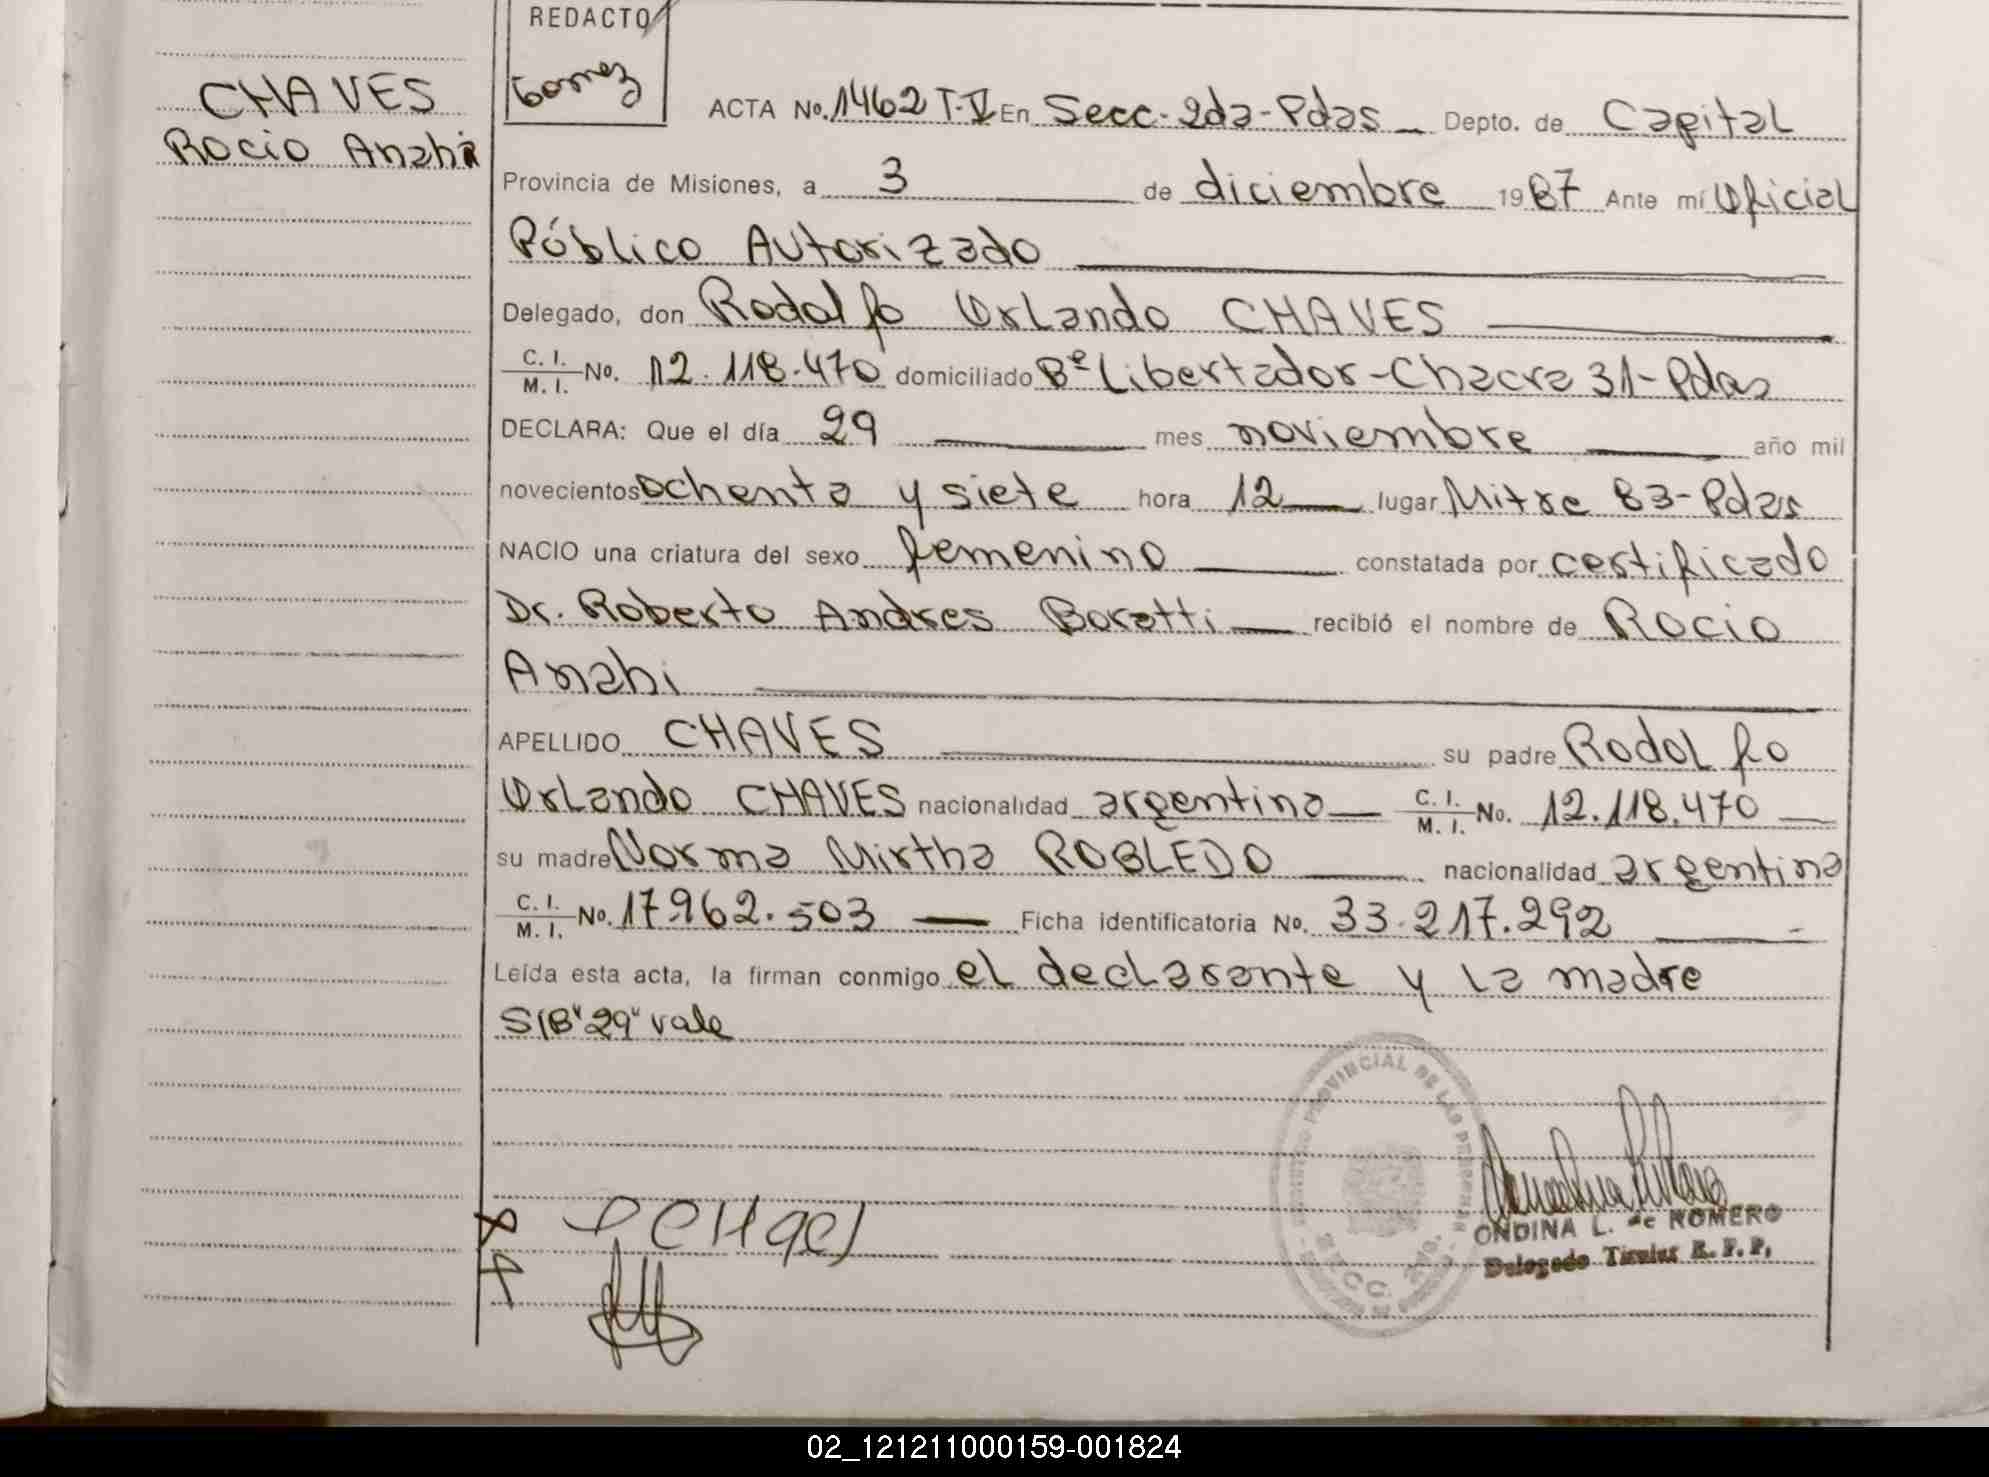 REDACTO
Gomez
CHAVES
Rocio Anahi
ACTA No. 1462 T-V En Secc. 2da-Pdas Depto. de Capital
Provincia de Misiones, a 3 de diciembre 1987 Ante mí Oficial
Público Autorizado
Delegado, don Rodolfo Orlando CHAVES
C. I. M. I. No. 12.118.470 domiciliado Bº Libertador-Chacra 31-Pdas
DECLARA: Que el día 29 mes noviembre año mil
novecientos ochenta y siete hora 12 lugar Mitre 83-Pdas
NACIO una criatura del sexo femenino constatada por certificado
Dr. Roberto Andres Boratti recibió el nombre de Rocio
Anahi
APELLIDO CHAVES su padre Rodolfo
Orlando CHAVES nacionalidad argentina C. I. M. I. No. 12.118.470
su madre Norma Mirtha ROBLEDO nacionalidad argentina
C. I. M. I. No. 17.962.503 Ficha identificatoria No. 33.217.292
Leída esta acta, la firman conmigo el declarante y la madre
S/B "29" vale
PROVINCIAL DE LAS PERSONAS
SECC. 2da.
ONDINA L. de ROMERO
Delegado Titular R. P. P.
02_121211000159-001824